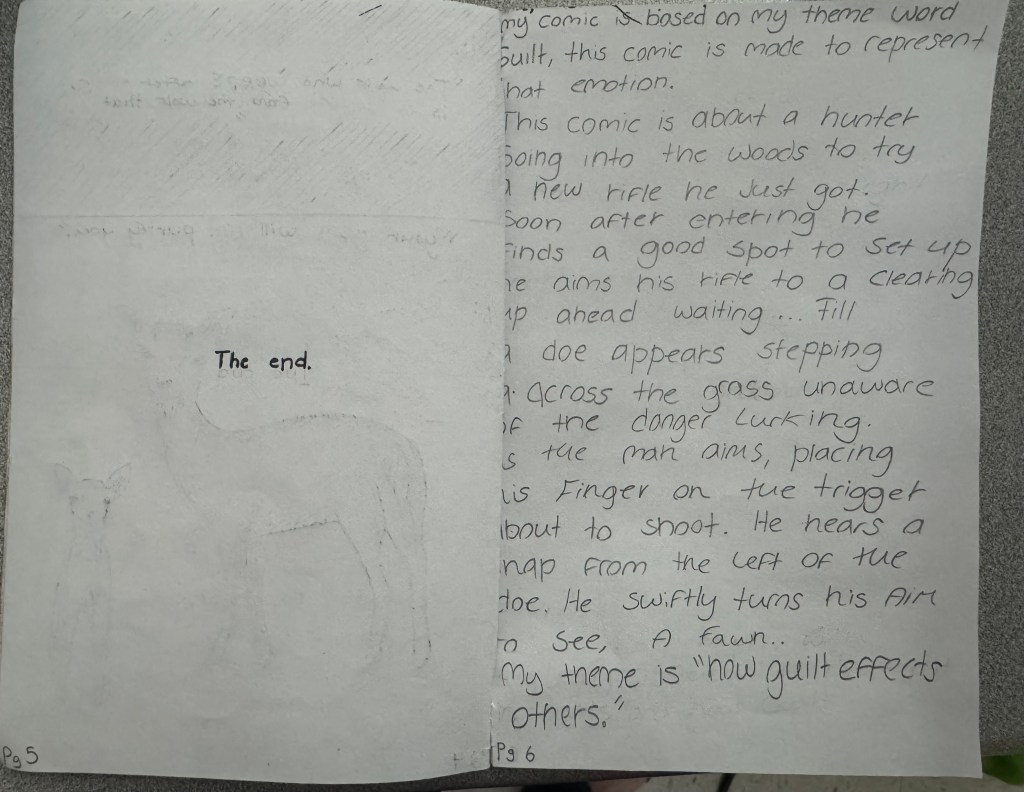 The end.
Pg 5
my comic is based on my theme word
Guilt, this comic is made to represent
hat emotion.
This comic is about a hunter
Going into the woods to try
a new rifle he Just got.
Soon after entering he
Finds a good spot to set up
he aims his rifle to a clearing
up ahead waiting... Till
a doe appears stepping
Across the grass unaware
of the danger Lurking.
s the man aims, placing
his Finger on the trigger
bout to shoot. He hears a
nap From the Left OF the
doe. He swiftly turns his AIM
to See, A fawn..
My theme is "how guilt effects
others."
Pg 6